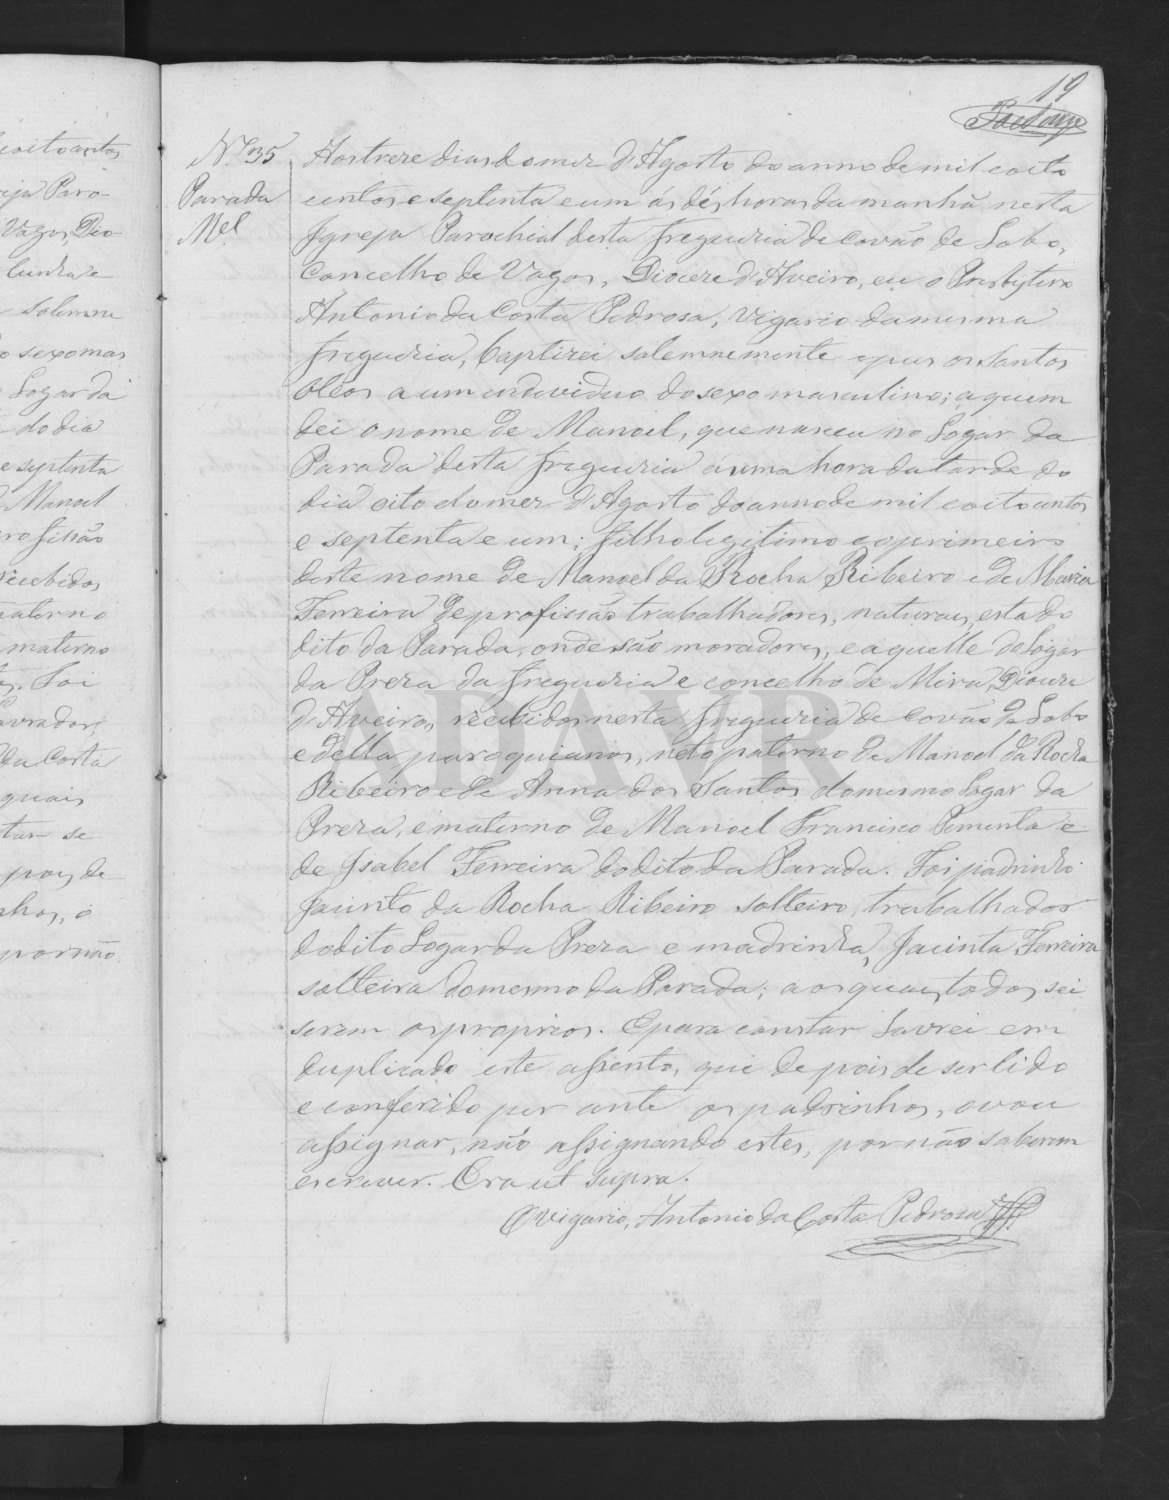 coitocentos
reja Paro-
Vagos, Dio-
solemne
sexo mas
Logar da
do dia
e septenta
Manoel
rofissão
recebidos
paterno
materno
Foi
Lavrador,
da Costa
quais
tar se
pois de
nhos, o
por não
19
Nº 35
Parada
Mel
Aos treze dias do mez d'Agosto do anno de mil e oito
centos e septenta e um ás dés horas da manhã nesta
Igreja Parochial desta freguezia de Covão de Lobo,
Concelho de Vagos, Diocese d'Aveiro, eu o Presbytero
Antonio da Costa Pedrosa, Vigario da mesma
freguezia, baptizei solemnemente e pus os Santos
Oleos a um individuo do sexo masculino; a quem
dei o nome de Manoel, que nasceu no Logar da
Parada desta freguezia á uma hora da tarde do
dia oito do mez d'Agosto do anno de mil e oito centos
e septenta e um; filho legitimo e o primeiro
deste nome de Manoel da Rocha Ribeiro e de Maria
Ferreira de profissão trabalhadores, naturaes, esta do
dito da Parada, onde são moradores, e aquelle do Logar
da Preza da freguezia e concelho de Mira, Diocese
d'Aveiro, recebidos nesta freguezia de Covão de Lobo
e della paroquianos, neto paterno de Manoel da Rocha
Ribeiro e de Anna dos Santos do mesmo Logar da
Preza, e materno de Manoel Francisco Pimenta e
de Isabel Ferreira do dito da Parada. Foi padrinho
Jacinto da Rocha Ribeiro solteiro, trabalhador
do dito Logar da Preza e madrinha, Jacinta Ferreira
solteira do mesmo da Parada; aos quaes todos sei
serem os proprios. E para constar lavrei em
duplicado este assento, que depois de ser lido
e conferido per ante os padrinhos, o vou
assignar, não assignando estes, por não saberem
escrever. Era ut supra.
O Vigario, Antonio da Costa Pedrosa
ADAVR